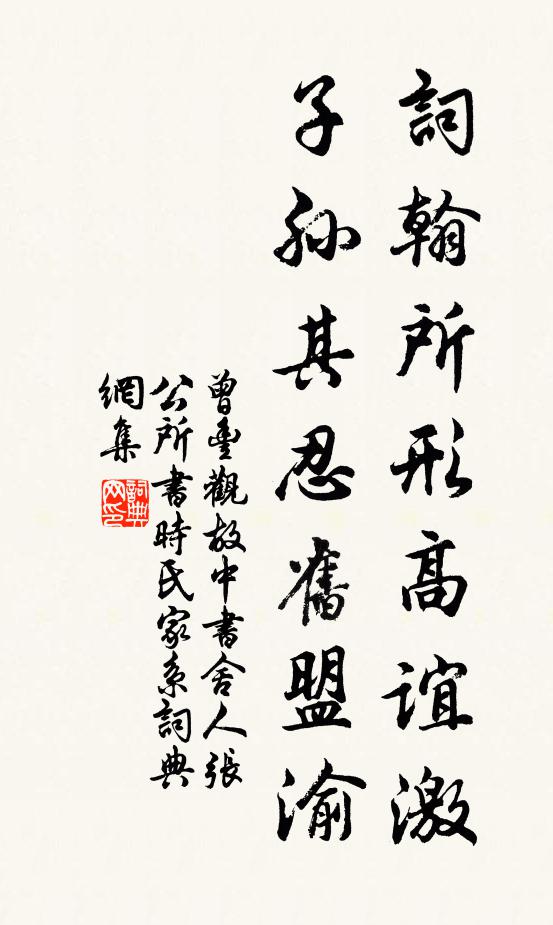 詞翰所形高誼激
子孫其忍舊盟渝
曾豐觀故中書舍人張
公所書時氏家系詞典
網集
詞典
网印